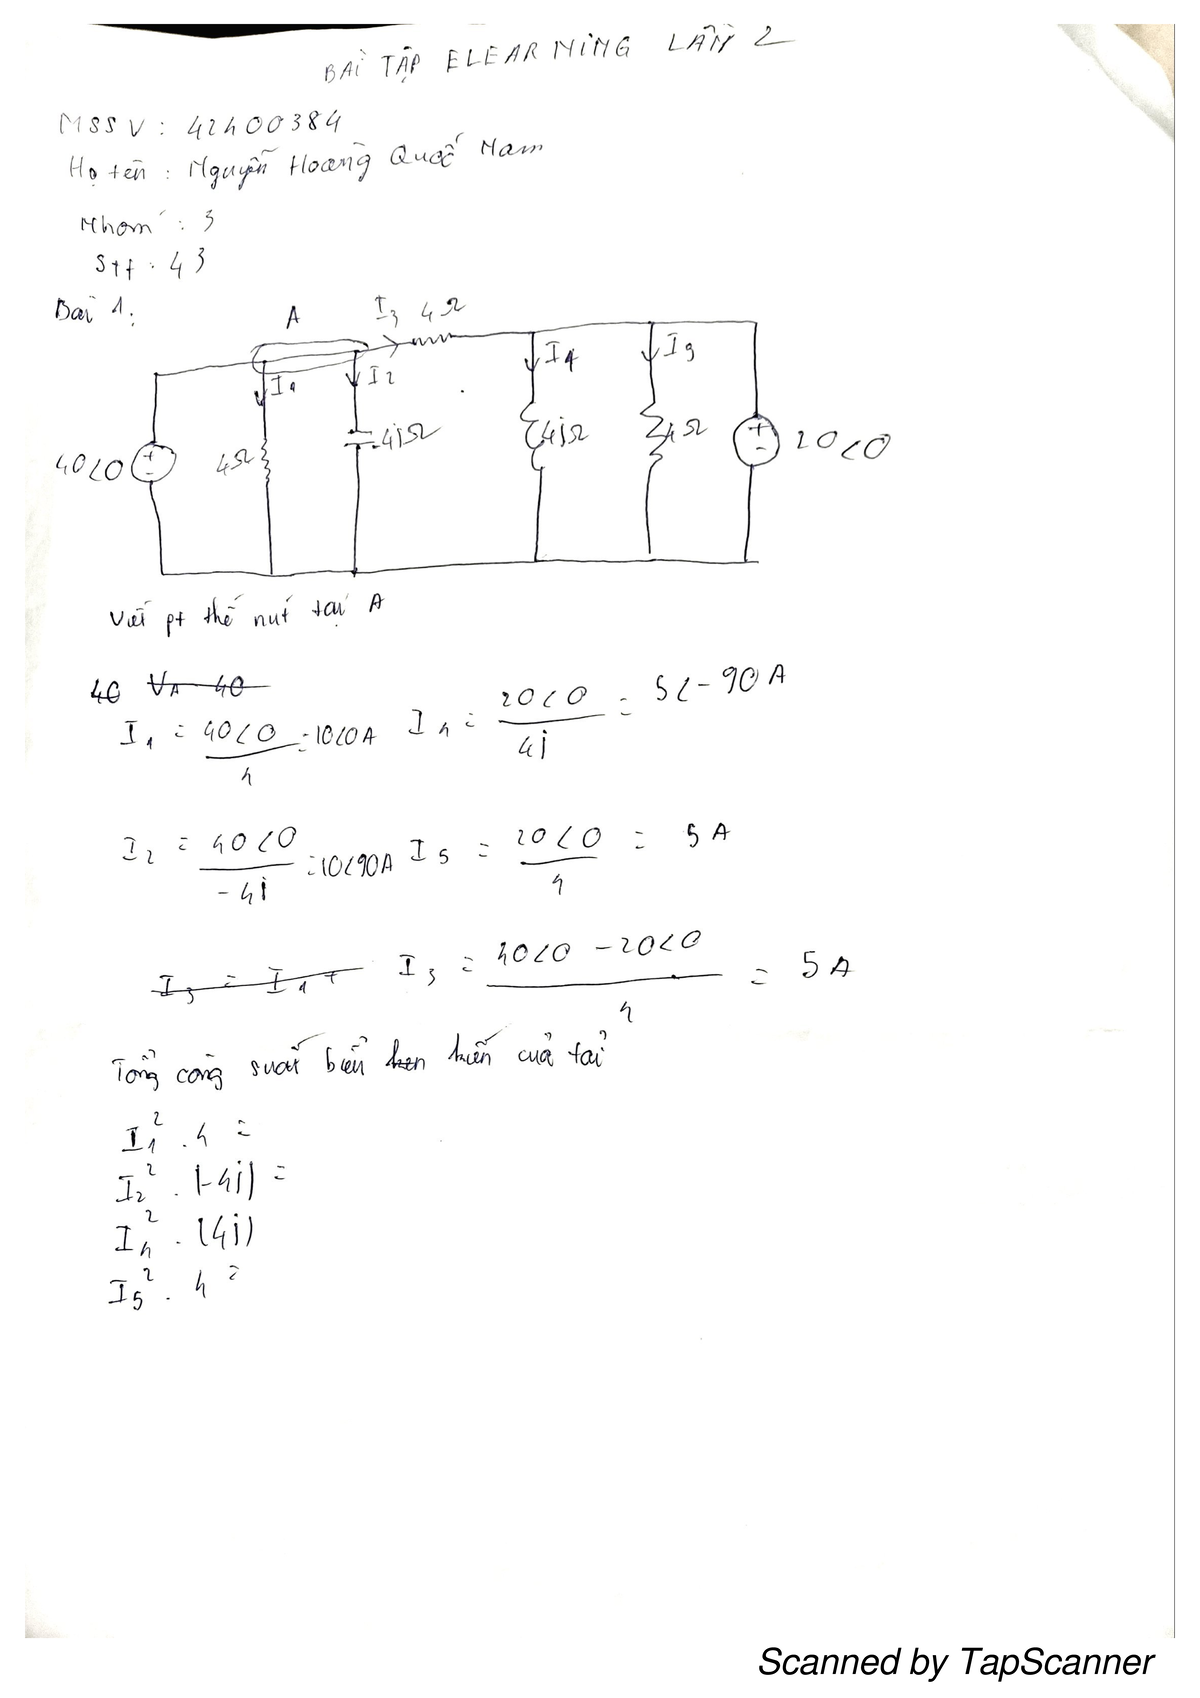 BÀI TẬP ELEARNING LẦN 2
MSSV: 42400384
Họ tên: Nguyễn Hoàng Quốc Nam
Nhóm: 3
Stt: 43
Bài 1:
A I3 4Ω
I1 I2 I4 I5
40<0 4Ω -4jΩ 4jΩ 4Ω 20<0
Viết pt thế nút tại A
I1 = 40<0 / 4 = 10<0 A I4 = 20<0 / 4j = 5<-90 A
I2 = 40<0 / -4j = 10<90 A I5 = 20<0 / 4 = 5 A
I3 = 40<0 - 20<0 / 4 = 5 A
Tổng công suất biểu kiến của tải
I1² . 4 =
I2² . (-4j) =
I4² . (4j)
I5² . 4 =
Scanned by TapScanner